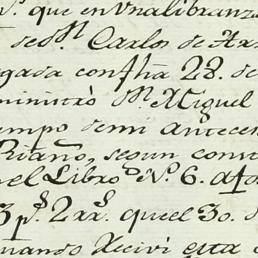 que en Una libranza
de Dn. Carlos de
gada con fha 28. de
ministrò Dn. Miguel
empo de mi antece
Riaño, segun const
el Libro No. 6. afo
3 ps. 2 rrs. que el 30. d
uando Recivi esta